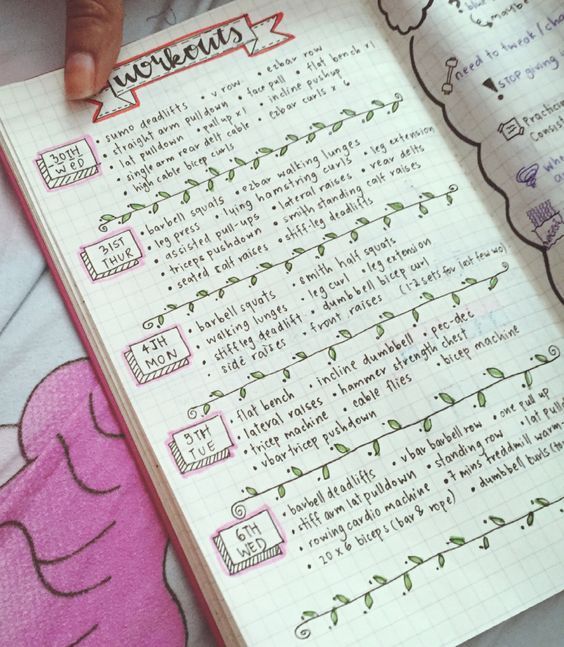 workouts
30TH WED
• sumo deadlifts • v row • ezbar row
• straight arm pulldown • face pull • flat bench x1
• lat pulldown • pull up x1 • incline pushup
• single arm rear delt cable • ezbar curls x 6
• high cable bicep curls
31ST THUR
• barbell squats • ezbar walking lunges • leg extension
• leg press • lying hamstring curls • rear delts
• assisted pull-ups • lateral raises
• triceps pushdown • smith standing calf raises
• seated calf raises • stiff-leg deadlifts
4TH MON
• barbell squats • smith half squats
• walking lunges • leg curl • leg extension
• stiff leg deadlift • dumbbell bicep curl
• side raises • front raises (1-2 sets for last few wo)
5TH TUE
• flat bench • incline dumbbell • pec-dec
• lateral raises • hammer strength chest
• tricep machine • cable flies • bicep machine
• vbar tricep pushdown
6TH WED
• barbell deadlifts • vbar barbell row • one pull up
• stiff arm lat pulldown • standing row • lat
• rowing cardio machine • 7 mins treddmill warm
• 20 x 6 biceps (bar & rope) • dumbbell curls
need to tweak
STOP giving